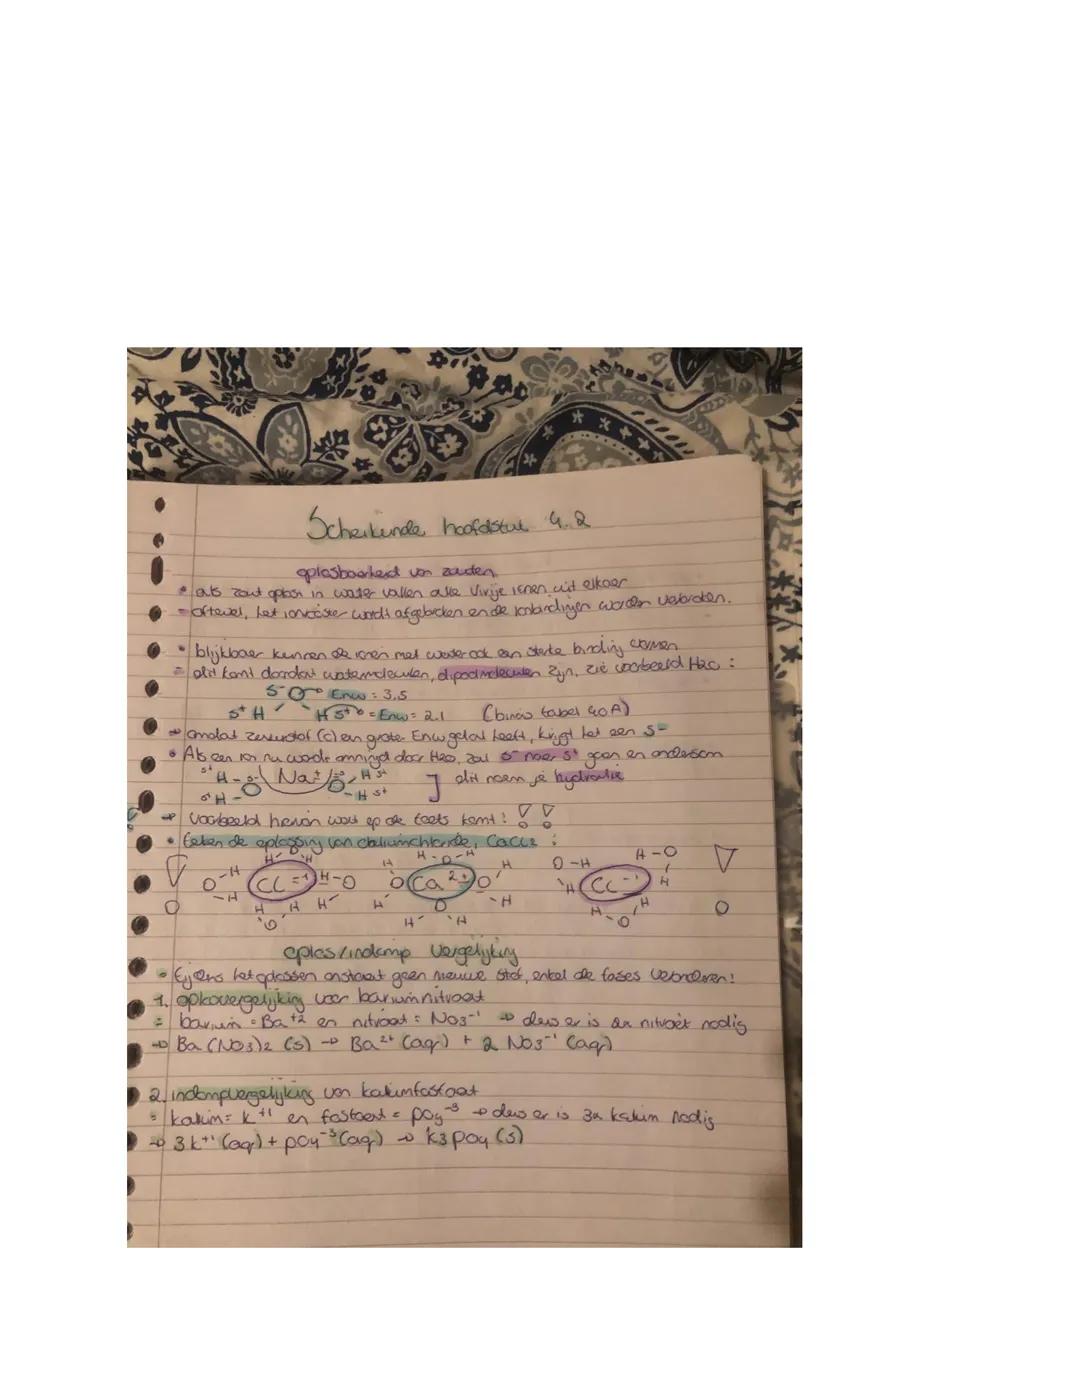 Scheikunde hoofdstuk 4.2
oplosbaarheid van zouten
als zout oplost in water vallen alle vrije ionen uit elkaar
= oftewel, het ionrooster wordt afgebroken en de ionbindingen worden verbroken.
blijkbaar kunnen de ionen met water ook een sterke binding vormen
= dit komt doordat watermoleculen, dipoolmoleculen zijn, zie voorbeeld H2O :
δ- O → Enw = 3,5
δ+ H H δ+ → Enw = 2.1 (binas tabel 40A)
→ omdat zuurstof (O) een grote Enw getal heeft, krijgt het een δ-
Als een ion nu wordt omringd door H2O, zal δ- naar δ+ gaan en andersom
δ+ H - δ- Na+ δ- H δ+ ] dit noem je hydratatie
δ+ H - O O - H δ+
→ voorbeeld hiervan wat op de toets komt! ! !
teken de oplossing van calciumchloride, CaCl2 :
H - O - H
O - H Cl -1 H - O O Ca 2+ O O - H Cl -1 H - O
oplos/indamp vergelijking
Tijdens het oplossen ontstaat geen nieuwe stof, enkel de fases veranderen!
1. oplosvergelijking voor bariumnitraat
= barium = Ba+2 en nitraat = NO3-1 → dus er is 2x nitraat nodig
→ Ba(NO3)2 (s) → Ba2+ (aq) + 2 NO3-1 (aq)
2. indampvergelijking van kaliumfosfaat
= kalium = K+1 en fosfaat = PO4-3 → dus er is 3x kalium nodig
→ 3K+1 (aq) + PO4-3 (aq) → K3PO4 (s)